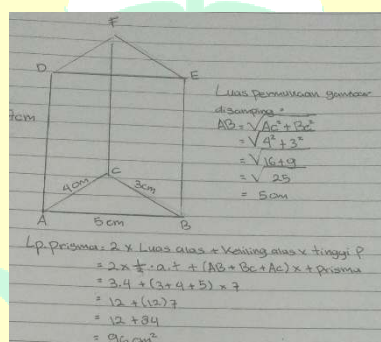 F
D
E
7cm
C
4cm
3cm
A
5cm
B
Luas permukaan gambar
disamping :
AB = √Ac² + Bc²
= √4² + 3²
= √16+9
= √25
= 5cm
Lp. prisma = 2 x Luas alas + keliling alas x tinggi P
= 2 x ½ . a . t + (AB + Bc + Ac) x t prisma
= 3.4 + (3+4+5) x 7
= 12 + (12) 7
= 12 + 84
= 96 cm²